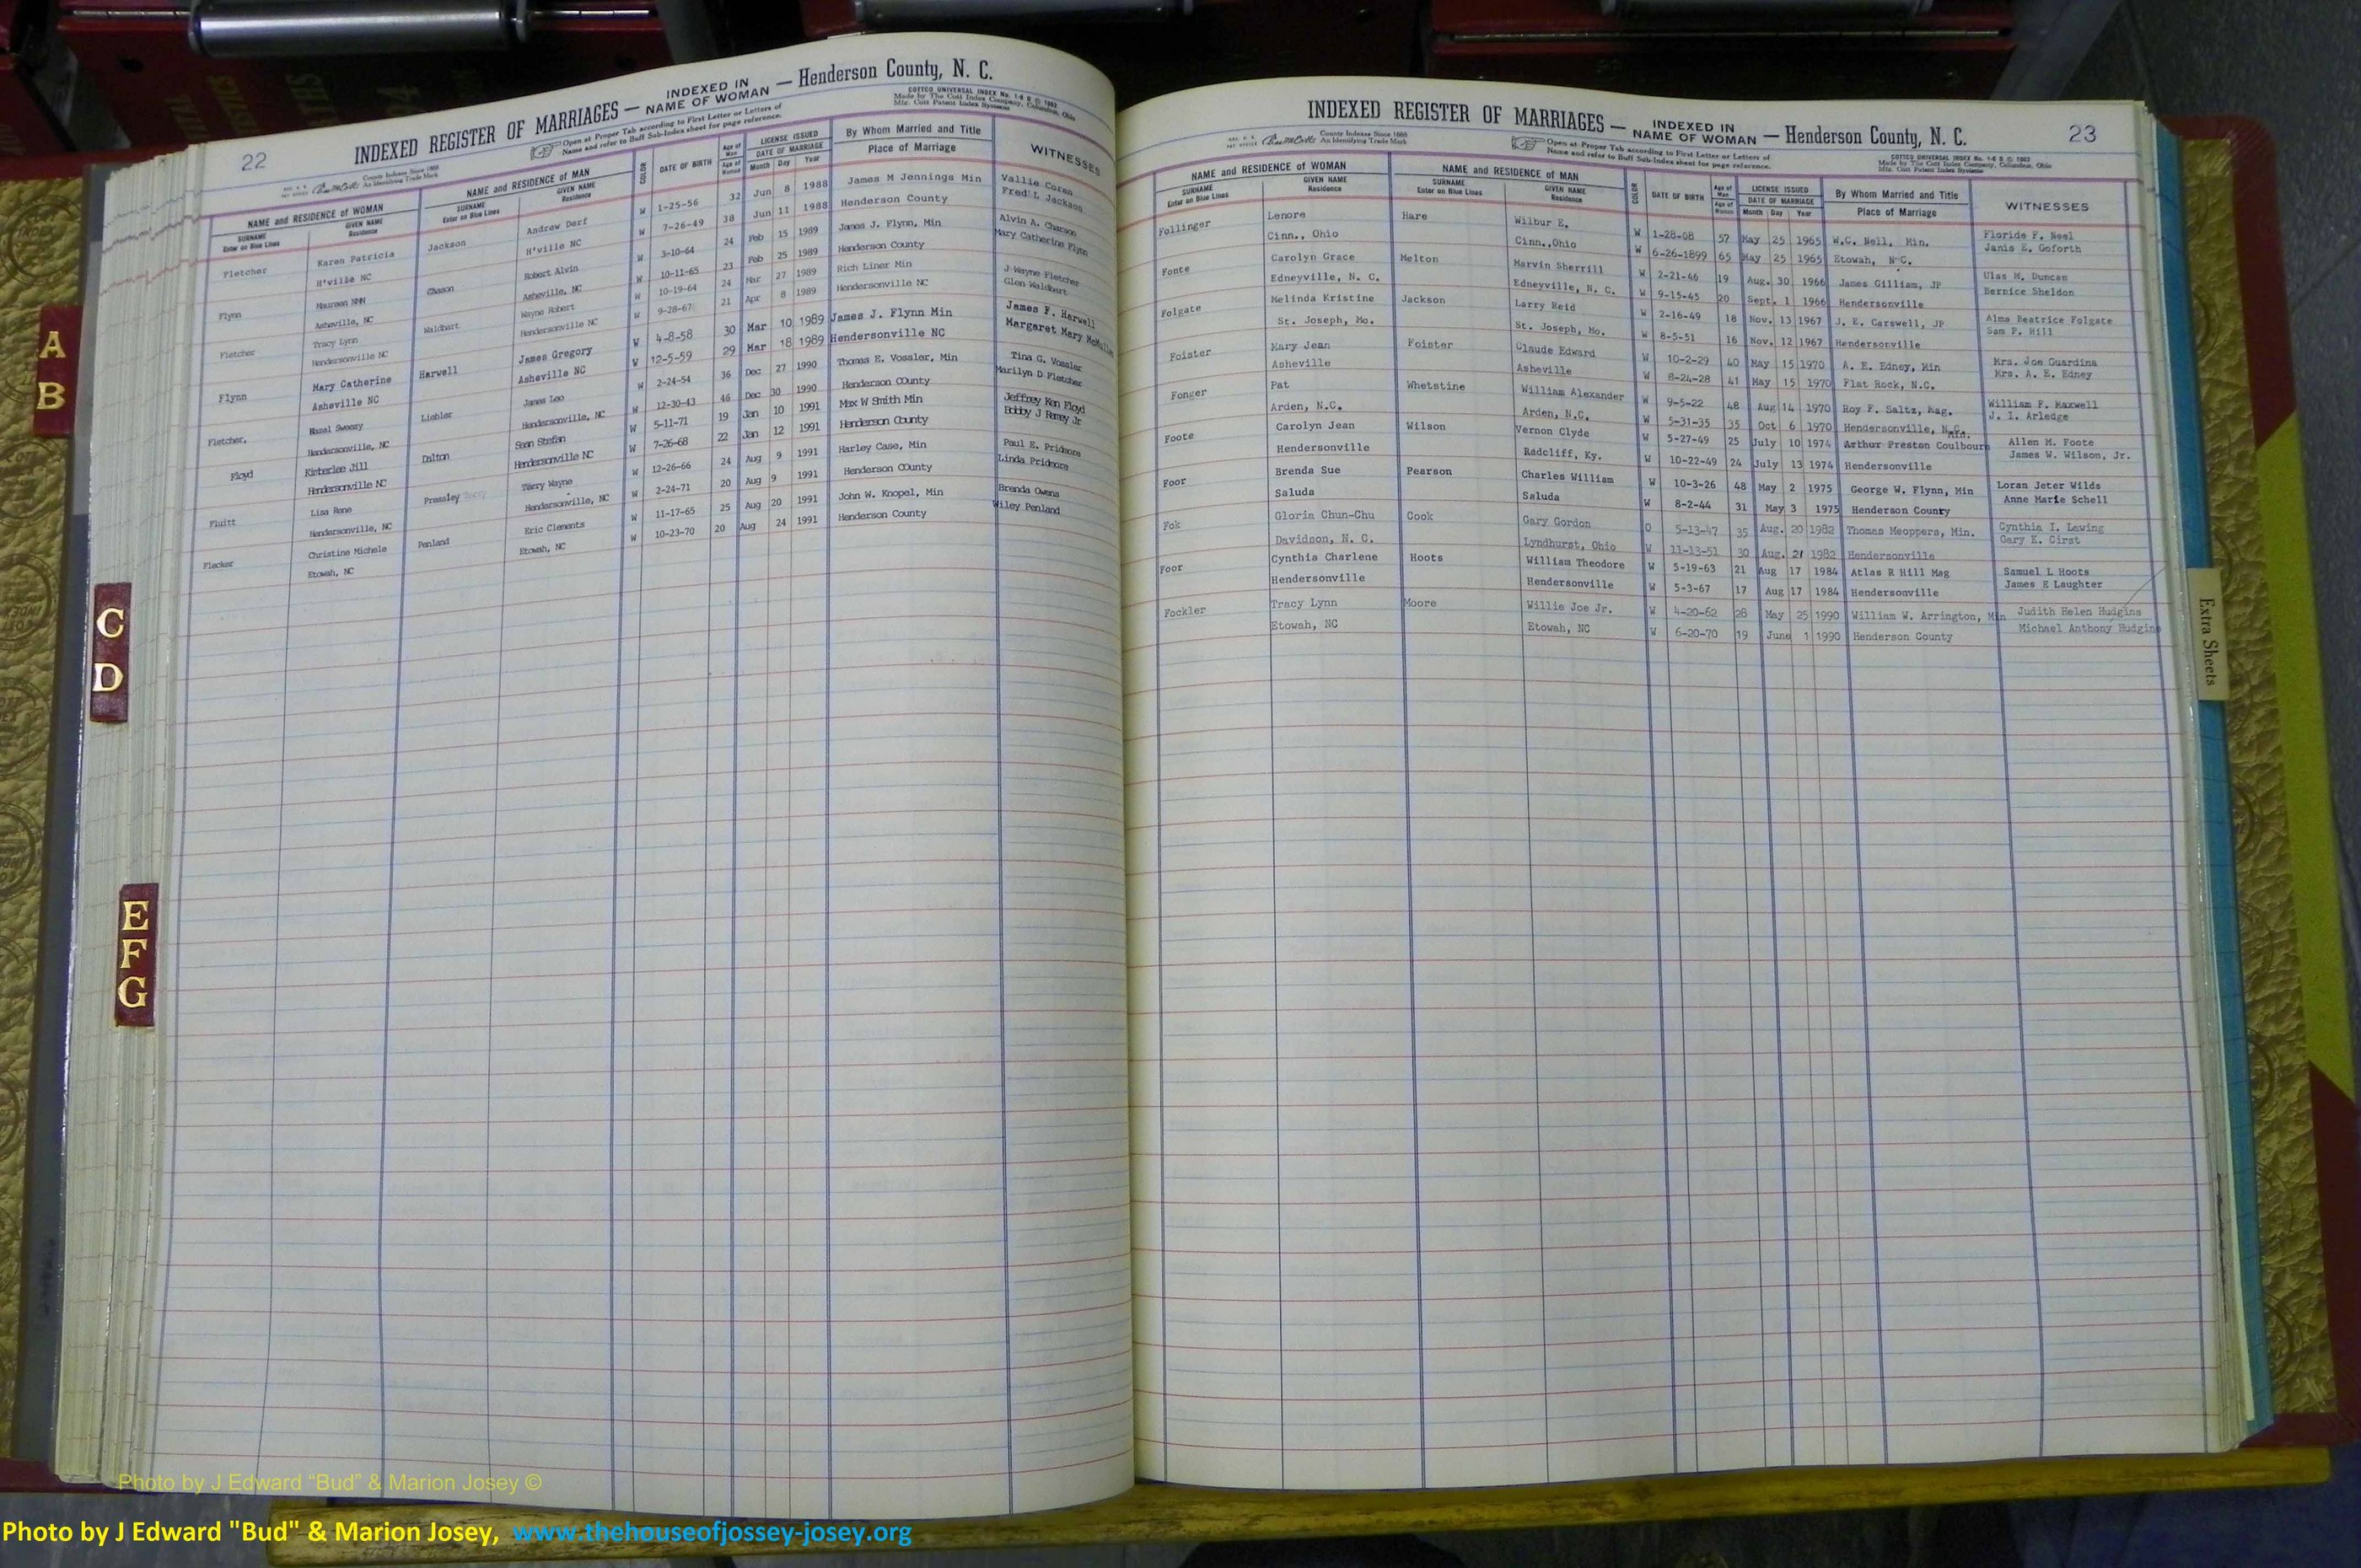 22
INDEXED REGISTER OF MARRIAGES — INDEXED IN NAME OF WOMAN — Henderson County, N. C.
REG. U. S. PAT. OFFICE County Indexes Since 1888 An Identifying Trade Mark
Open at Proper Tab according to First Letter or Letters of Name and refer to Buff Sub-Index sheet for page reference.
COTTCO UNIVERSAL INDEX No. Made by The Cott Index Company, Columbus, Ohio Mfg. Cott Patent Index Systems
NAME and RESIDENCE OF WOMAN NAME and RESIDENCE OF MAN COLOR DATE OF BIRTH Age of Man Age of Woman LICENSE ISSUED DATE OF MARRIAGE By Whom Married and Title Place of Marriage WITNESSES
SURNAME Enter on Blue Lines GIVEN NAME Residence SURNAME Enter on Blue Lines GIVEN NAME Residence Month Day Year
Fletcher Karen Patricia Jackson Andrew Derf W 1-25-56 32 Jun 8 1988 James M Jennings Min Vallie Coren
H'ville NC H'ville NC W 7-26-49 38 Jun 11 1988 Henderson County Fred L Jackson
Flynn Maureen NMN Chason Robert Alvin W 3-10-64 24 Feb 15 1989 James J. Flynn, Min Alvin A. Chason
Asheville, NC Asheville, NC W 10-11-65 23 Feb 25 1989 Henderson County Mary Catherine Flynn
Fletcher Tracy Lynn Waldhart Wayne Robert W 10-19-64 24 Mar 27 1989 Rich Liner Min J Wayne Fletcher
Hendersonville NC Hendersonville NC W 9-28-67 21 Apr 8 1989 Hendersonville NC Glen Waldhart
Flynn Mary Catherine Harwell James Gregory W 4-8-58 30 Mar 10 1989 James J. Flynn Min James F. Harwell
Asheville NC Asheville NC W 12-5-59 29 Mar 18 1989 Hendersonville NC Margaret Mary
Fletcher, Hazel Sweezy Liebler James Leo W 2-24-54 36 Dec 27 1990 Thomas E. Vossler, Min Tina G. Vossler
Hendersonville, NC Hendersonville, NC W 12-30-43 46 Dec 30 1990 Henderson COunty Marilyn D Fletcher
Floyd Kimberlee Jill Dalton Sean Stefan W 5-11-71 19 Jan 10 1991 Max W Smith Min Jeffrey Ken Floyd
Hendersonville NC Hendersonville NC W 7-26-68 22 Jan 12 1991 Henderson County Bobby J Ramey Jr
Fluitt Lisa Rene Pressley Terry Wayne W 12-26-66 24 Aug 9 1991 Harley Case, Min Paul E. Pridmore
Hendersonville, NC Hendersonville, NC W 2-24-71 20 Aug 9 1991 Henderson COunty Linda Pridmore
Flecker Christine Michele Penland Eric Clements W 11-17-65 25 Aug 20 1991 John W. Knopel, Min Brenda Owens
Etowah, NC Etowah, NC W 10-23-70 20 Aug 24 1991 Henderson County Wiley Penland
INDEXED REGISTER OF MARRIAGES — INDEXED IN NAME OF WOMAN — Henderson County, N. C.
23
REG. U. S. PAT. OFFICE County Indexes Since 1888 An Identifying Trade Mark
Open at Proper Tab according to First Letter or Letters of Name and refer to Buff Sub-Index sheet for page reference.
COTTCO UNIVERSAL INDEX No. Made by The Cott Index Company, Columbus, Ohio Mfg. Cott Patent Index Systems
NAME and RESIDENCE OF WOMAN NAME and RESIDENCE OF MAN COLOR DATE OF BIRTH Age of Man Age of Woman LICENSE ISSUED DATE OF MARRIAGE By Whom Married and Title Place of Marriage WITNESSES
SURNAME Enter on Blue Lines GIVEN NAME Residence SURNAME Enter on Blue Lines GIVEN NAME Residence Month Day Year
Follinger Lenore Hare Wilbur E. W 1-28-08 57 May 25 1965 W.C. Nell, Min. Floride F. Neel
Cinn., Ohio Cinn.,Ohio W 6-26-1899 65 May 25 1965 Etowah, N.C. Janis E. Goforth
Fonte Carolyn Grace Melton Marvin Sherrill W 2-21-46 19 Aug. 30 1966 James Gilliam, JP Ulas M. Duncan
Edneyville, N. C. Edneyville, N. C. W 9-15-45 20 Sept. 1 1966 Hendersonville Bernice Sheldon
Folgate Melinda Kristine Jackson Larry Reid W 2-16-49 18 Nov. 13 1967 J. E. Carswell, JP Alma Beatrice Folgate
St. Joseph, Mo. St. Joseph, Mo. W 8-5-51 16 Nov. 12 1967 Hendersonville Sam P. Hill
Foister Mary Jean Foister Claude Edward W 10-2-29 40 May 15 1970 A. E. Edney, Min Mrs. Joe Guardina
Asheville Asheville W 8-24-28 41 May 15 1970 Flat Rock, N.C. Mrs. A. E. Edney
Fonger Pat Whetstine William Alexander W 9-5-22 48 Aug 14 1970 Roy F. Saltz, Mag. William F. Maxwell
Arden, N.C. Arden, N.C. W 5-31-35 35 Oct 6 1970 Hendersonville, N.C. J. I. Arledge
Foote Carolyn Jean Wilson Vernon Clyde W 5-27-49 25 July 10 1974 Arthur Preston Coulbourn Min. Allen M. Foote
Hendersonville Radcliff, Ky. W 10-22-49 24 July 13 1974 Hendersonville James W. Wilson, Jr.
Foor Brenda Sue Pearson Charles William W 10-3-26 48 May 2 1975 George W. Flynn, Min Loran Jeter Wilds
Saluda Saluda W 8-2-44 31 May 3 1975 Henderson County Anne Marie Schell
Fok Gloria Chun-Chu Cook Gary Gordon O 5-13-47 35 Aug. 20 1982 Thomas Meoppers, Min. Cynthia I. Lewing
Davidson, N. C. Lyndhurst, Ohio W 11-13-51 30 Aug. 21 1982 Hendersonville Gary K. Girst
Foor Cynthia Charlene Hoots William Theodore W 5-19-63 21 Aug 17 1984 Atlas R Hill Mag Samuel L Hoots
Hendersonville Hendersonville W 5-3-67 17 Aug 17 1984 Hendersonville James E Laughter
Fockler Tracy Lynn Moore Willie Joe Jr. W 4-20-62 28 May 25 1990 William W. Arrington, Min Judith Helen Hudgins
Etowah, NC Etowah, NC W 6-20-70 19 June 1 1990 Henderson County Michael Anthony Hudgins
A
B
C
D
E
F
G
Extra Sheets
Photo by J Edward “Bud” & Marion Josey ©
Photo by J Edward "Bud" & Marion Josey, www.thehouseofjossey-josey.org